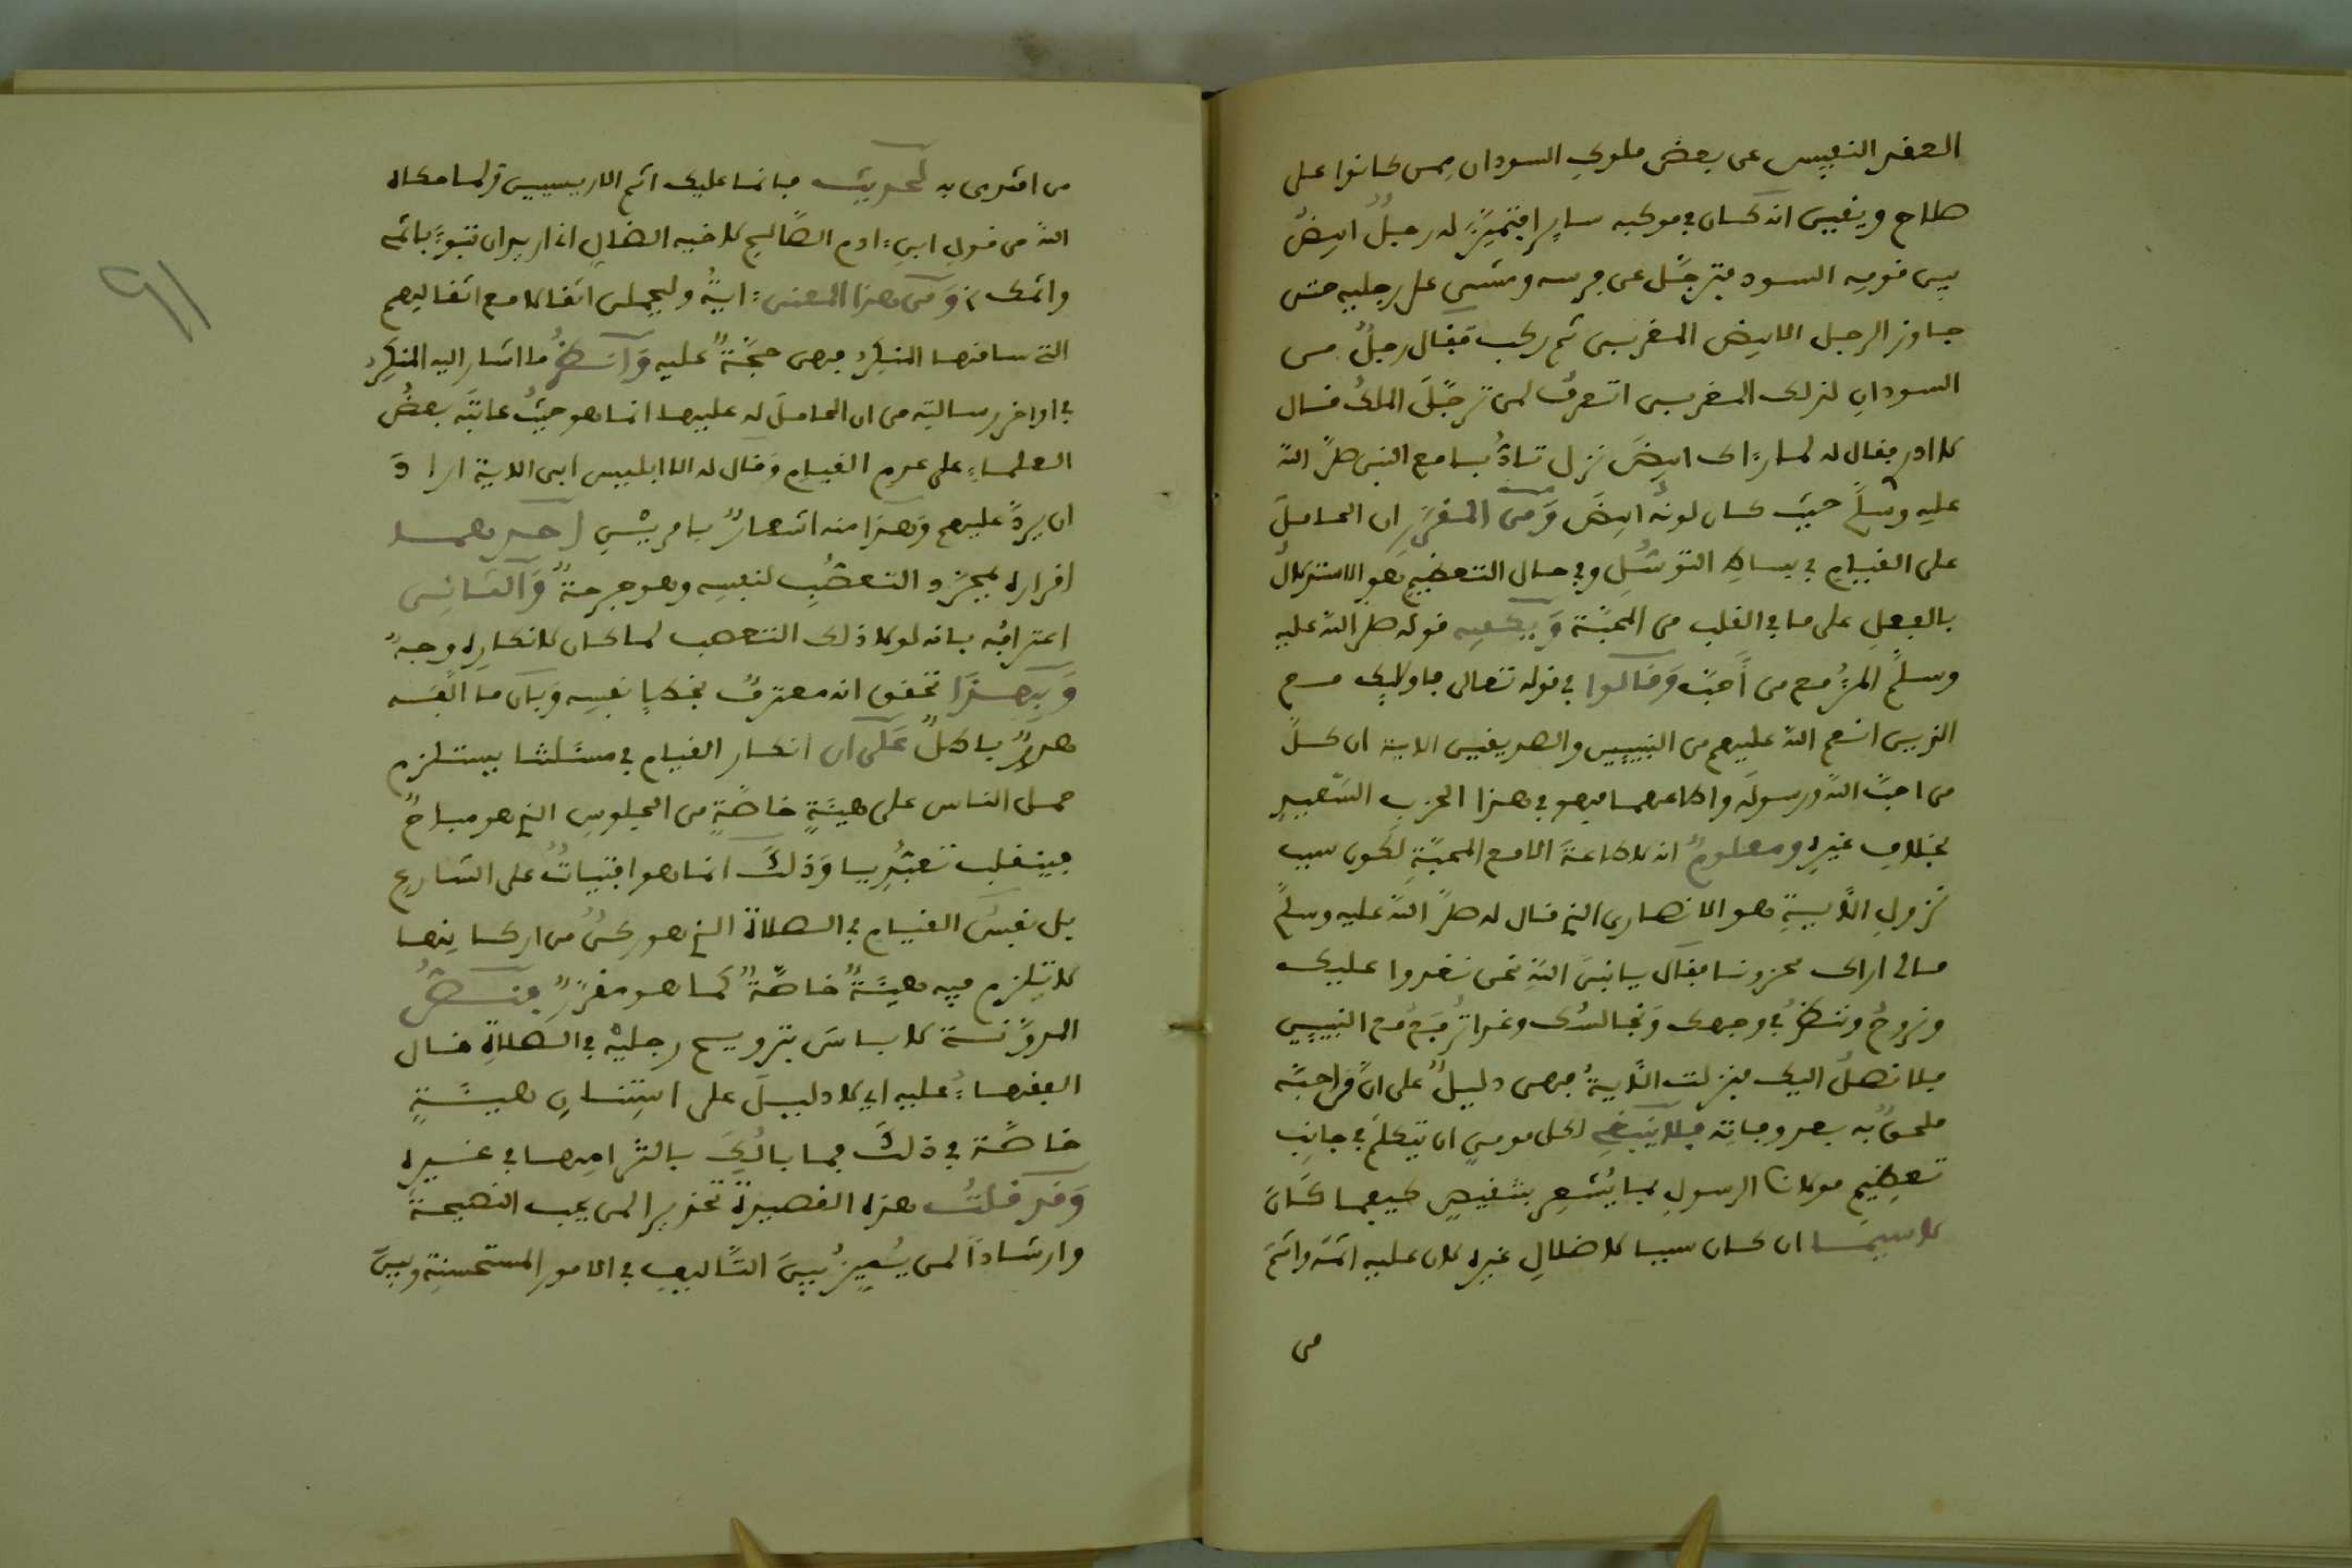 العقد النفيس عن بعض ملوك السودان ممن كانوا على
صلاح ويقين انه كان في موكبه سايرا فتميز له رجل ابيض
بين قومه السود فترجل عن فرسه ومشى على رجليه حتى
جاوز الرجل الابيض المغربي ثم ركب فقال رجل من
السودان لذلك المغربي اتعرف لمن ترجل الملك قال
لا ادر فقال له لما رءاك ابيض نزل تادبا مع النبي صلى الله
عليه وسلم حيث كان لونه ابيض ومن المقرر ان الحامل
على القيام في بساط التوسل وفي حال التعظيم هو الاستدلال
بالفعل على ما في القلب من المحبة ويكفيه قوله صلى الله عليه
وسلم المرء مع من أحب وقالوا في قوله تعالى فاولايك مع
الذين انعم الله عليهم من النبيين والصديقين الاية ان كل
من احب الله ورسوله واطاعهما فهو في هذا الحزب السعيد
بخلاف غيره ومعلوم انه لا طاعة الا مع المحبة لكون سبب
نزول الآية هو الانصاري الذي قال له صلى الله عليه وسلم
مالي اراك محزونا فقال يا نبي الله نحن نغدوا عليك
ونروح وننظر في وجهك ونجالسك وغدا ترفع مع النبيين
فلا نصل اليك فنزلت الآية فهي دليل على ان من احبه
ملحق به بعد وفاته فلا ينبغي لكل مومن ان يتكلم في جانب
تعظيم مولانا الرسول بما يشعر بتنقيص كيفما كان
لا سيما ان كان سببا لاضلال غيره لان عليه اثمه واثم
من
من اقتدى به لحديث فانما عليك اثم الاريسيين ولما حكاه
الله من قول ابن ءادم الصالح لاخيه الضال اني اريد ان تبوء باثمي
واثمك ومن هذا المعنى ءاية وليحملن اثقالا مع اثقالهم
التي ساقها المنكر فهي حجة عليه وانظر ما اشار اليه المنكر
في اواخر رسالته من ان الحامل له عليها انما هو حيث عاتبه بعض
العلماء على عدم القيام وقال له الا ابليس ابى الاية اراد
ان يرد عليهم وهذا منه اشعار بامرين احدهما
اقراره بمجرد التعصب لنفسه وهو جرحة والثاني
اعترافه بانه لولا ذلك التعصب لما كان لانكاره وجه
وبهذا تحقق انه معترف بخطإ نفسه وبان ما الفه
هدر باطل على ان انكار القيام في مسئلتنا يستلزم
حمل الناس على هيئة خاصة من الجلوس الذي هو مباح
فينقلب تعبديا وذلك انما هو افتيات على الشارع
بل نفس القيام في الصلاة الذي هو ركن من اركانها
لا تلزم فيه هيئة خاصة كما هو مقرر فنظر
المدونة لا باس بترويح رجليه في الصلاة قال
الفقهاء عليه اي لا دليل على استنان هيئة
خاصة في ذلك فما بالك بالتزامها في غيره
وقد قلت هذه القصيدة تحذيرا لمن يحب النصيحة
وارشادا لمن يميز بين التاليف في الامور المستحسنة وبين